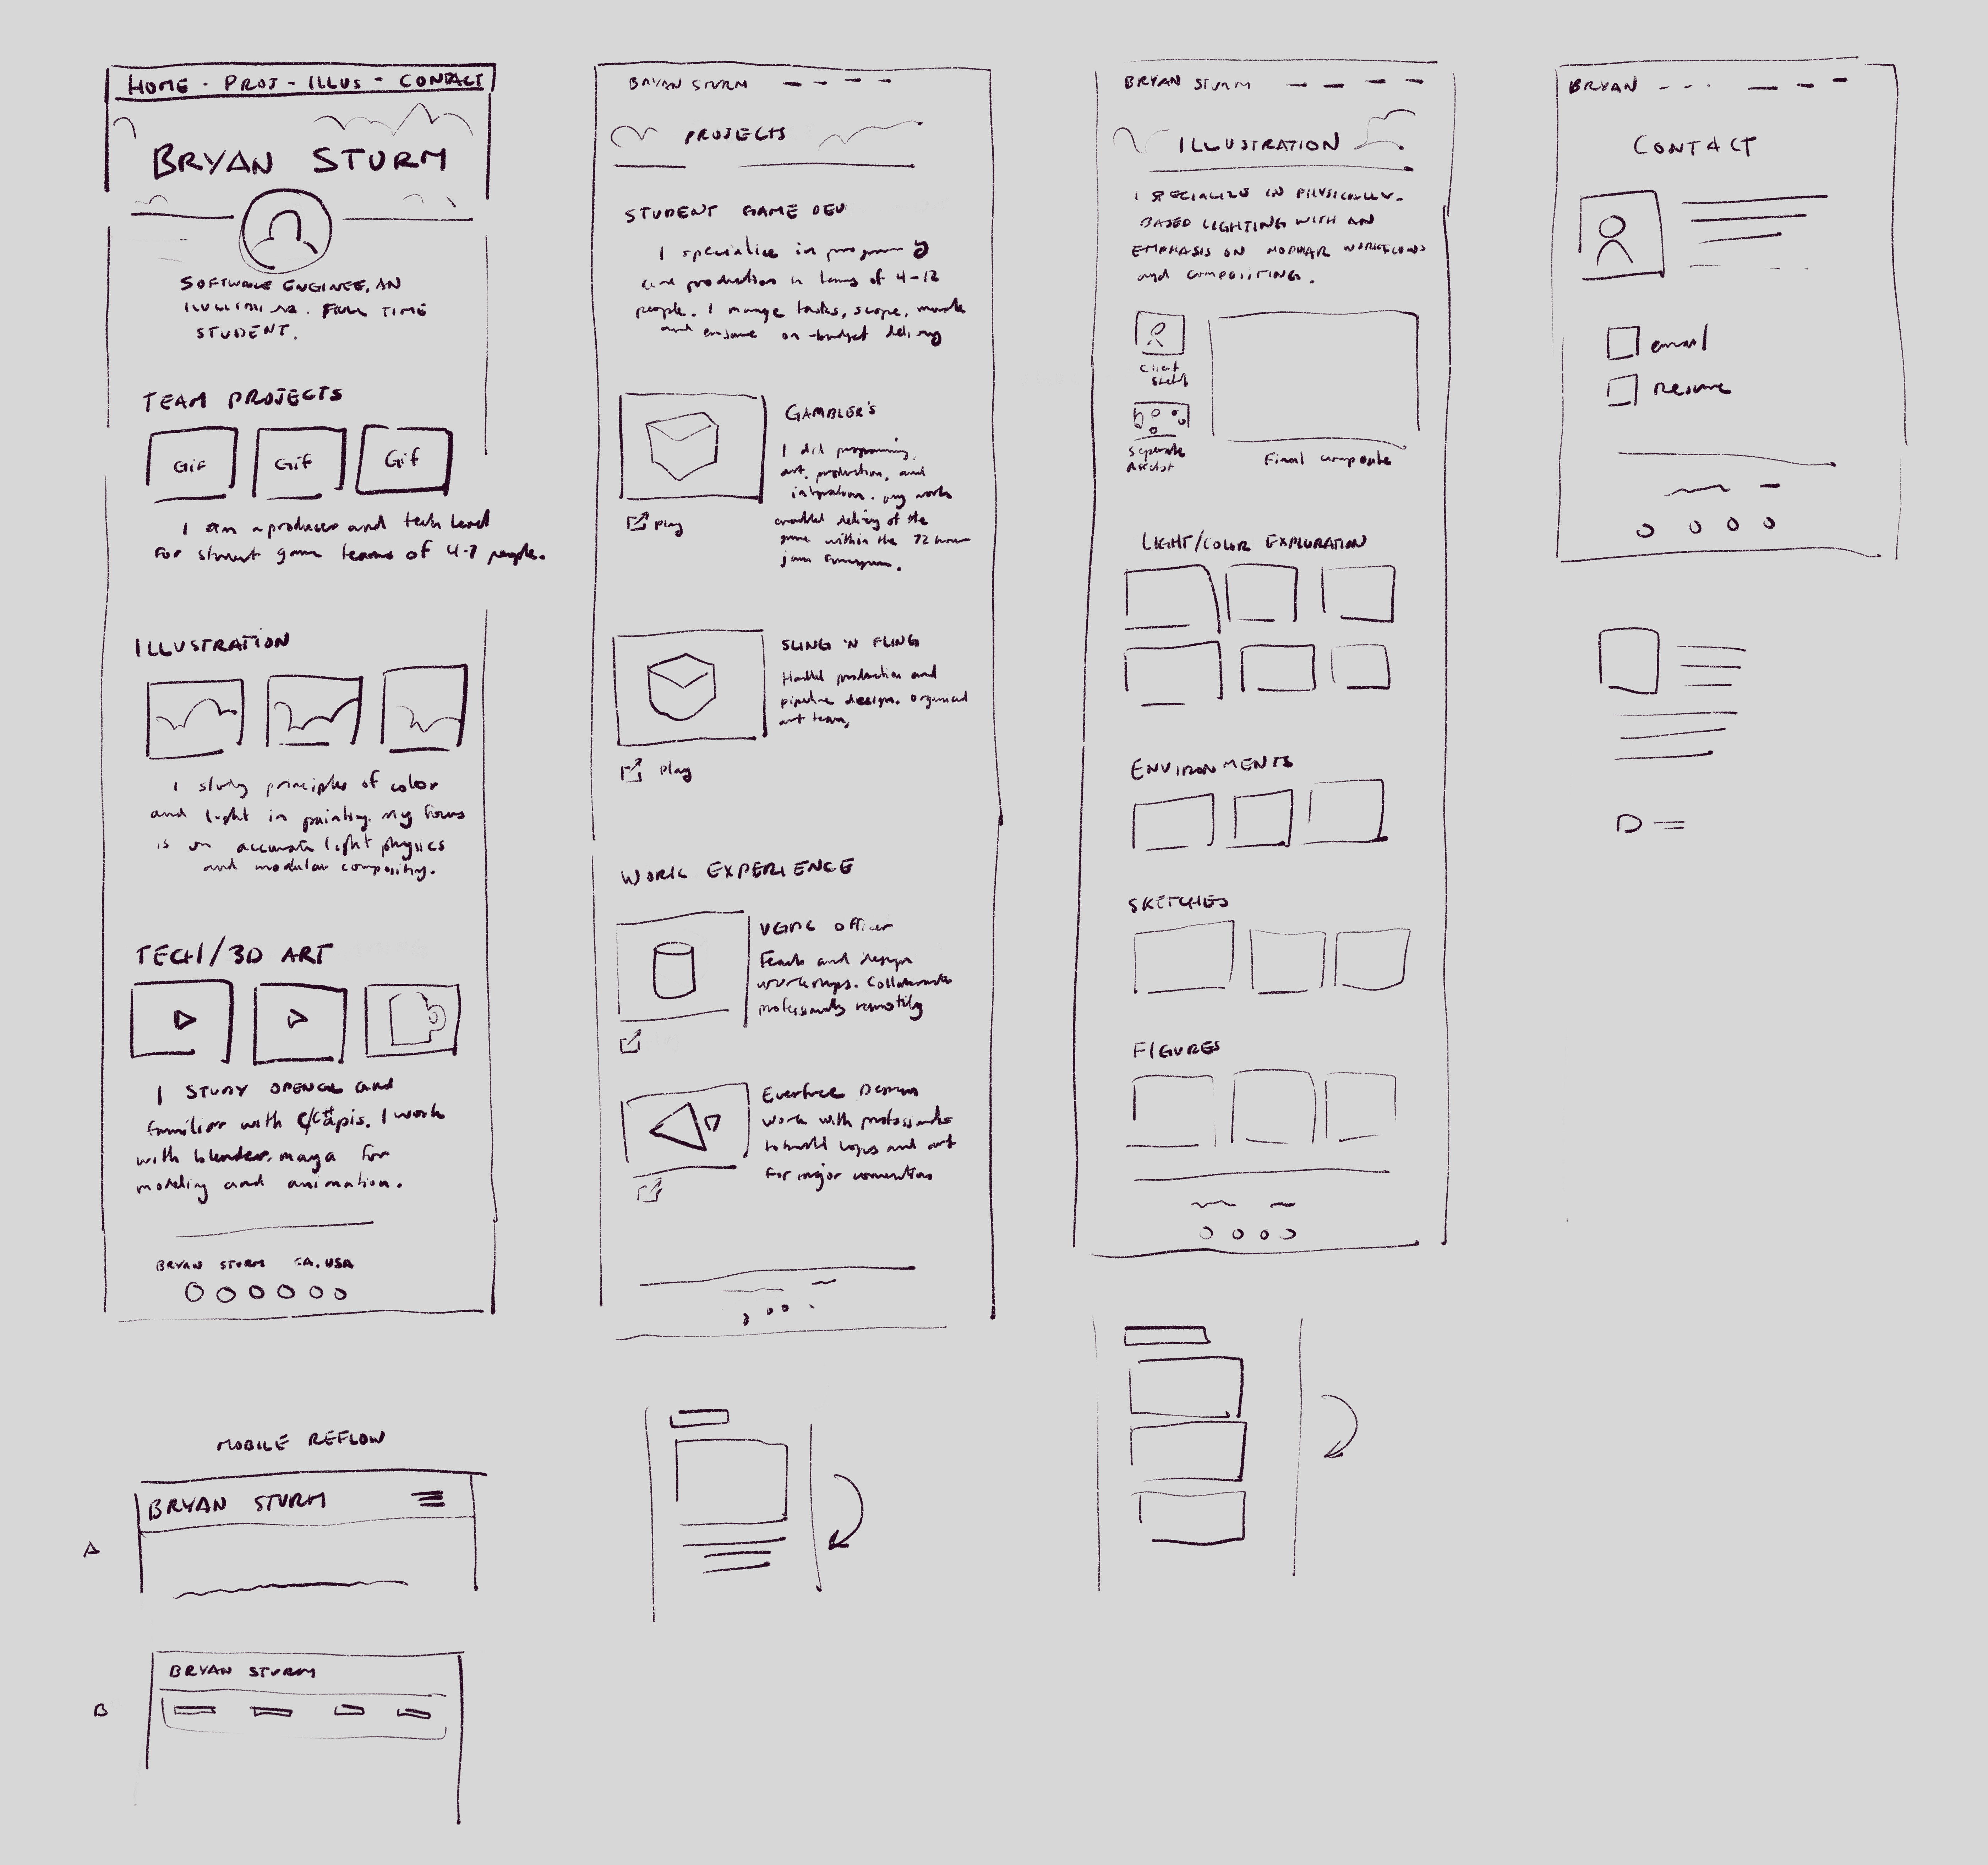 HOME - PROJ - ILLUS - CONTACT
BRYAN STURM
SOFTWARE ENGINEE, AN
FULL TIME
STUDENT.
TEAM PROJECTS
Gif Gif Gif
I am a producer and tech lead
for student game teams of 4-7 people.
ILLUSTRATION
I study principles of color
and light in painting. My focus
is on accurate light physics
and modular compositing.
TECH/3D ART
I STUDY OPENGL and
familiar with C/C# apis. I work
with blender, maya for
modeling and animation.
BRYAN STURM CA, USA
MOBILE REFLOW
A
BRYAN STURM
B
BRYAN STURM
BRYAN STURM
PROJECTS
STUDENT GAME DEV
I specialize in
and production in teams of 4-12
people. I manage tasks, scope,
and ensure on-budget delivery
GAMBLER'S
I did programming,
art, production, and
integration. my work
enabled delivery of the
game within the 72 hour
jam
Play
SLING 'N FLING
Handled production and
pipeline design. Organized
art team,
Play
WORK EXPERIENCE
VGDC Officer
and design
workshops. Collaborate
professionally remotely
Everfree Designs
work with professionals
to build logos and art
for major conventions
BRYAN STURM
ILLUSTRATION
I SPECIALIZE IN PHYSICALLY-
BASED LIGHTING WITH AN
EMPHASIS ON WORKFLOWS
and compositing.
client
sketch
separate
Final composite
LIGHT/COLOR EXPLORATION
ENVIRONMENTS
SKETCHES
FIGURES
BRYAN
CONTACT
email
Resume